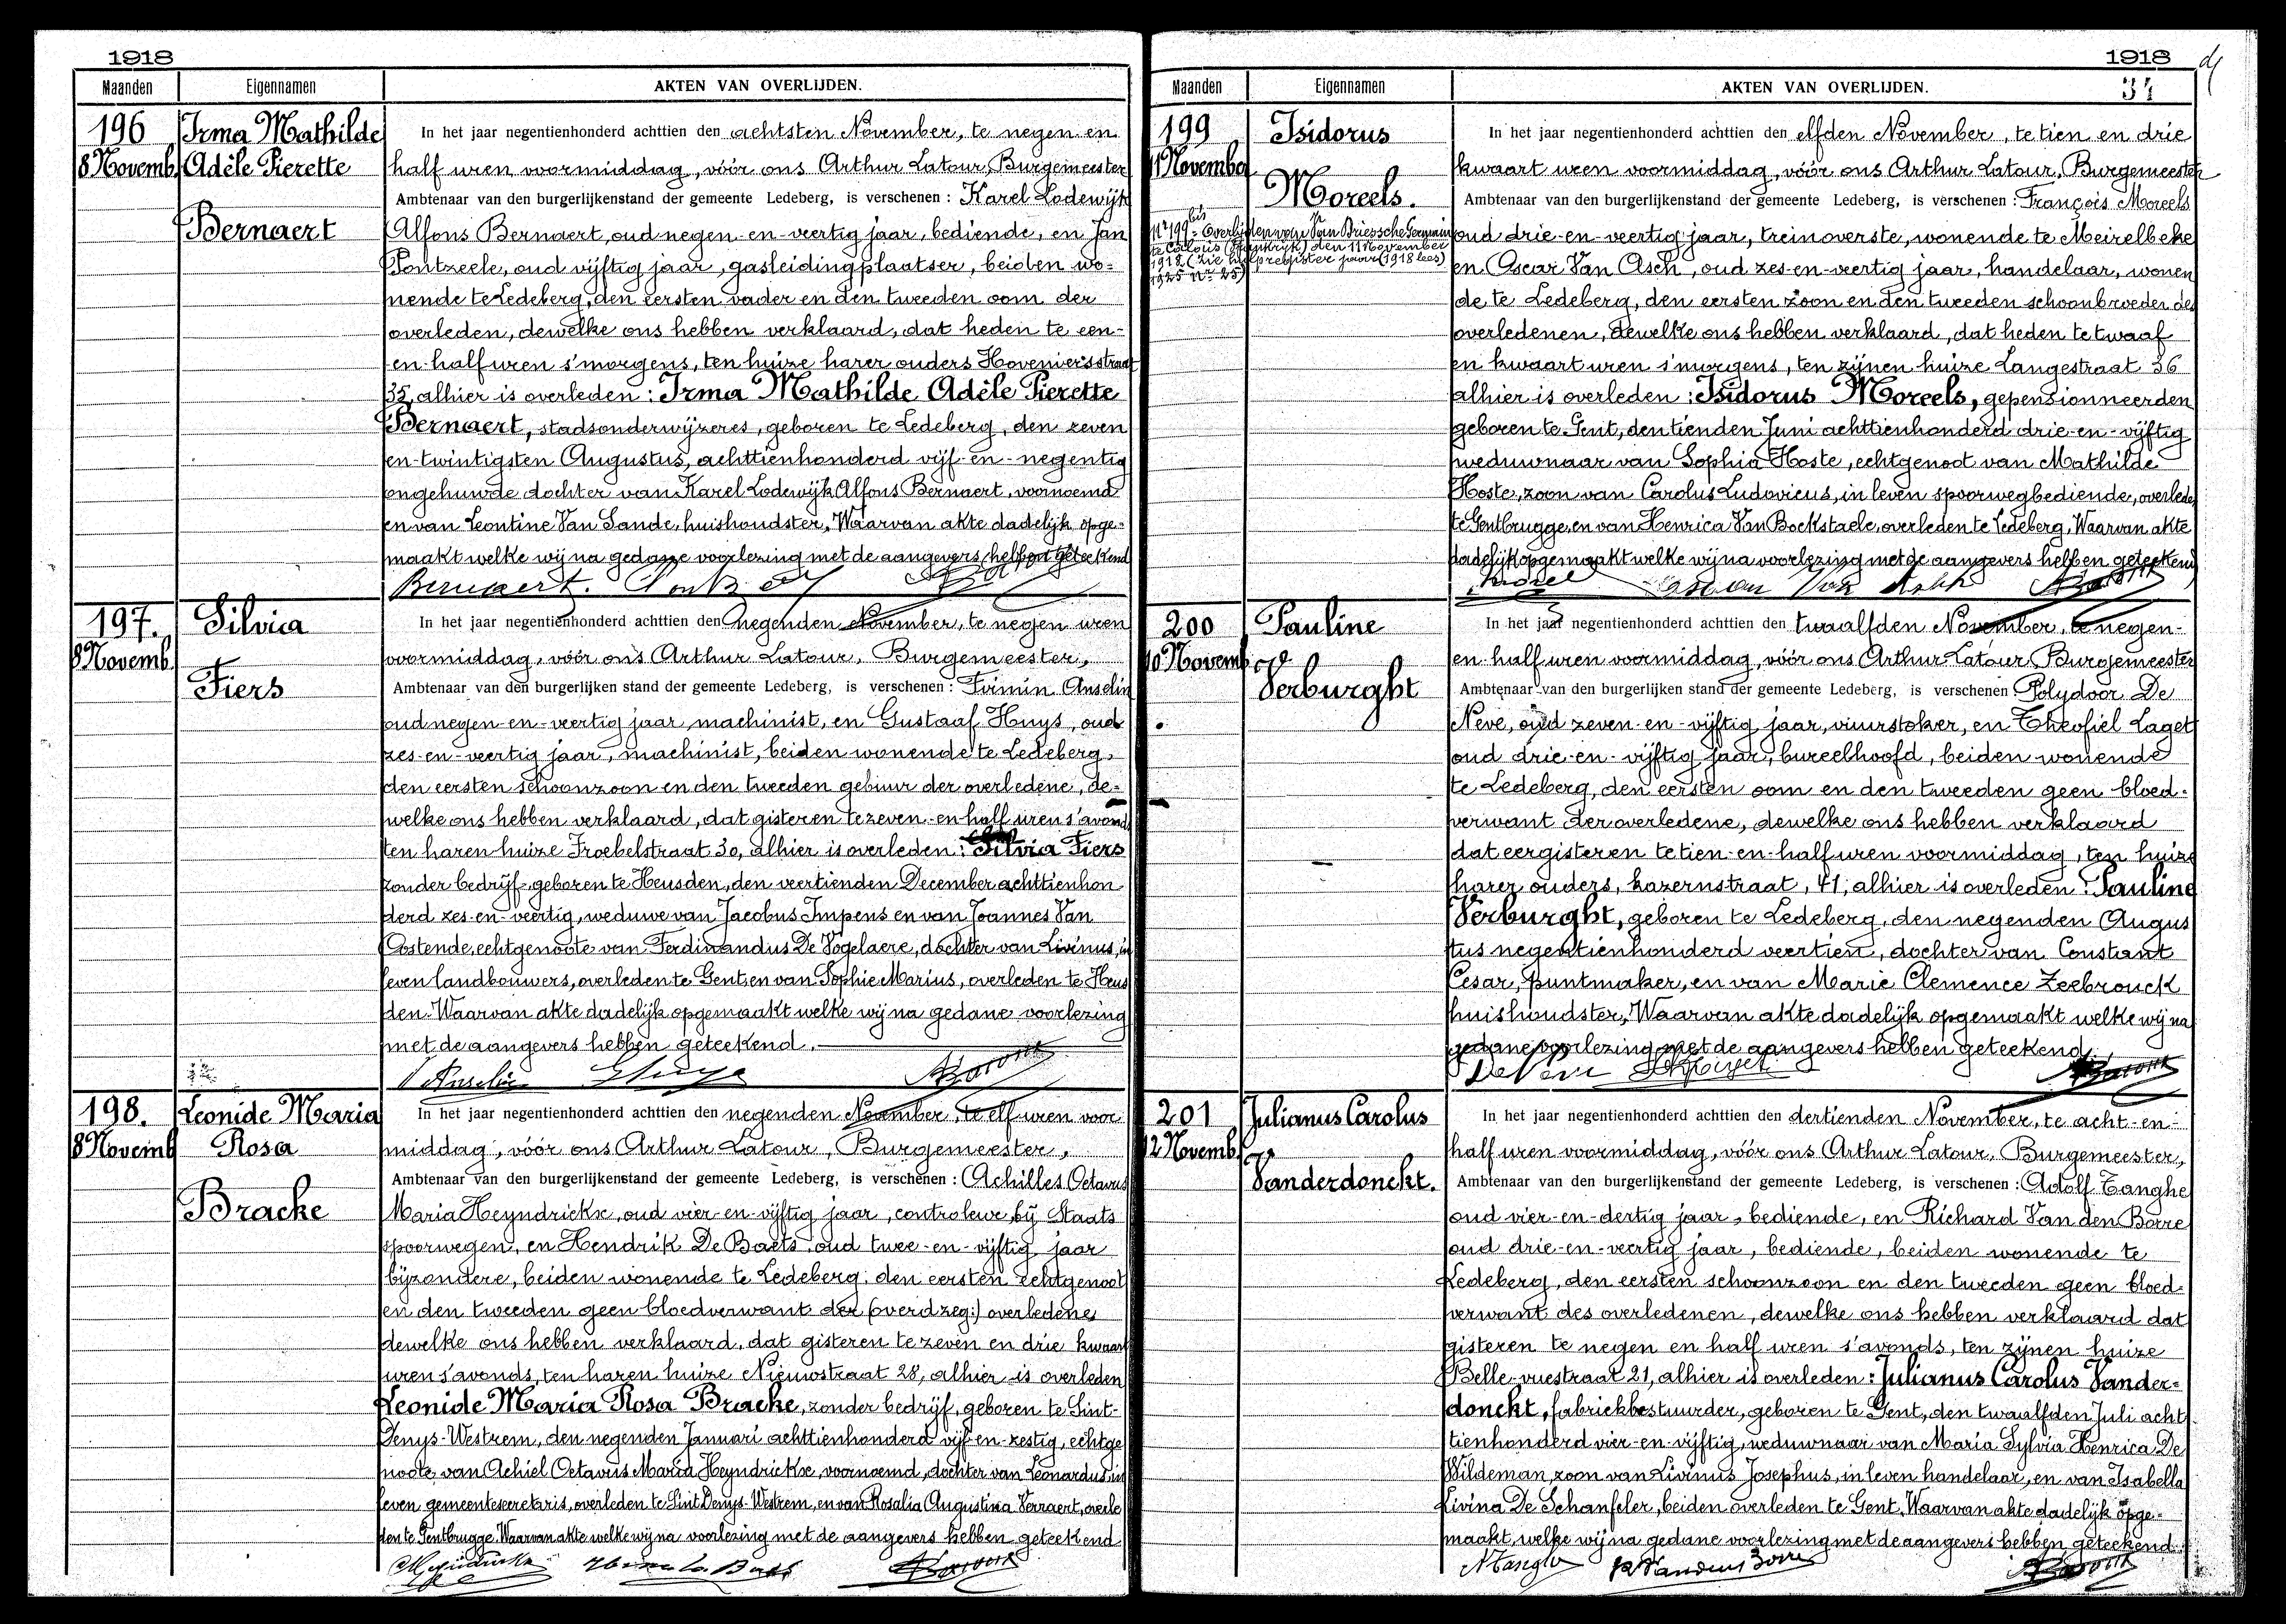 1918
Maanden
Eigennamen
AKTEN VAN OVERLIJDEN.
196
8 Novemb.
Irma Mathilde
Adèle Pierette
Bernaert
In het jaar negentienhonderd achttien den achtsten November, te negen en
half uren voormiddag, vóór ons Arthur Latour, Burgemeester
Ambtenaar van den burgerlijkenstand der gemeente Ledeberg, is verschenen : Karel Lodewijk
Alfons Bernaert, oud negen-en-veertig jaar, bediende, en Jan
Pontzeele, oud vijftig jaar, gasleidingplaatser, beiden wo-
nende te Ledeberg, den eersten vader en den tweeden oom der
overleden, dewelke ons hebben verklaard, dat heden te een-
en-half uren s'morgens, ten huize harer ouders Hoveniersstraat
35, alhier is overleden : Irma Mathilde Adèle Pierette
Bernaert, stadsonderwijzeres, geboren te Ledeberg, den zeven
en-twintigsten Augustus, achttienhonderd vijf-en-negentig
ongehuwde dochter van Karel Lodewijk Alfons Bernaert, voornoemd
en van Leontine Van Sande, huishoudster, Waarvan akte dadelijk opge-
maakt welke wij na gedane voorlezing met de aangevers hebben geteekend
Bernaert.
197.
8 Novemb.
Silvia
Fiers
In het jaar negentienhonderd achttien den negenden November, te negen uren
voormiddag, vóór ons Arthur Latour, Burgemeester,
Ambtenaar van den burgerlijken stand der gemeente Ledeberg, is verschenen : Firmin Anselin
oud negen-en-veertig jaar, machinist, en Gustaaf Huys, oud
zes-en-veertig jaar, machinist, beiden wonende te Ledeberg,
den eersten schoonzoon en den tweeden gebuur der overledene, de-
welke ons hebben verklaard, dat gisteren te zeven-en-half uren s'avonds
ten haren huize Froebelstraat 30, alhier is overleden : Silvia Fiers
zonder bedrijf, geboren te Heusden, den veertienden December achttienhon
derd zes-en-veertig, weduwe van Jacobus Impens en van Joannes Van
Oostende, echtgenoote van Ferdinandus De Vogelaere, dochter van Livinus, in
leven landbouwers, overleden te Gent en van Sophie Marius, overleden te Heus
den. Waarvan akte dadelijk opgemaakt welke wij na gedane voorlezing
met de aangevers hebben geteekend.
Anselin
198.
8 Novemb
Leonide Maria
Rosa
Bracke
In het jaar negentienhonderd achttien den negenden November, te elf uren voor
middag, vóór ons Arthur Latour, Burgemeester,
Ambtenaar van den burgerlijkenstand der gemeente Ledeberg, is verschenen : Achilles Octavus
Maria Heyndrickx, oud vier-en-vijftig jaar, controleur bij Staats
spoorwegen, en Hendrik De Baets, oud twee-en-vijftig jaar
bijzondere, beiden wonende te Ledeberg, den eersten echtgenoot
en den tweeden geen bloedverwant der (overd zeg:) overledene
dewelke ons hebben verklaard, dat gisteren te zeven en drie kwaart
uren s'avonds, ten haren huize Nieuwstraat 28, alhier is overleden
Leonide Maria Rosa Bracke, zonder bedrijf, geboren te Sint-
Denys-Westrem, den negenden Januari achttienhonderd vijf-en-zestig, echtge
noote van Achiel Octavus Maria Heyndrickx, voornoemd, dochter van Leonardus, in
leven gemeentesecretaris, overleden te Sint Denys-Westrem, en van Rosalia Augustina Verraert, overle
den te Gentbrugge. Waarvan akte welke wij na voorlezing met de aangevers hebben geteekend
1918
34
Maanden
Eigennamen
AKTEN VAN OVERLIJDEN.
199
11 November
Isidorus
Moreels.
Nr 199 bis = Overlijden van Van Driessche Germain
te Calais (Frankrijk) den 11 November
1918 (zie hulpregister jaar (1918 lees)
1925 nr 25)
In het jaar negentienhonderd achttien den elfden November, te tien en drie
kwaart uren voormiddag, vóór ons Arthur Latour, Burgemeester
Ambtenaar van den burgerlijkenstand der gemeente Ledeberg, is verschenen : François Moreels
oud drie-en-veertig jaar, treinoverste, wonende te Meirelbeke
en Oscar Van Asch, oud zes-en-veertig jaar, handelaar, wonen
de te Ledeberg, den eersten zoon en den tweeden schoonbroeder des
overledenen, dewelke ons hebben verklaard, dat heden te twaaf
en kwaart uren s'morgens, ten zijnen huize Langestraat 36
alhier is overleden : Isidorus Moreels, gepensionneerden
geboren te Gent, den tienden Juni achttienhonderd drie-en-vijftig
weduwnaar van Sophia Hoste, echtgenoot van Mathilde
Hoste, zoon van Carolus Ludovicus, in leven spoorwegbediende, overleden
te Gentbrugge, en van Henrica Van Bockstaele, overleden te Ledeberg. Waarvan akte
dadelijk opgemaakt welke wij na voorlezing met de aangevers hebben geteekend
200
10 Novemb
Pauline
Verburght
In het jaar negentienhonderd achttien den twaalfden November, te negen-
en-half uren voormiddag, vóór ons Arthur Latour, Burgemeester
Ambtenaar van den burgerlijken stand der gemeente Ledeberg, is verschenen : Polydoor De
Neve, oud zeven-en-vijftig jaar, vuurstoker, en Theofiel Laget
oud drie-en-vijftig jaar, bureelhoofd, beiden wonende
te Ledeberg, den eersten oom en den tweeden geen bloed-
verwant der overledene, dewelke ons hebben verklaard
dat eergisteren te tien-en-half uren voormiddag, ten huize
harer ouders, kazernstraat, 41, alhier is overleden : Pauline
Verburght, geboren te Ledeberg, den negenden Augus
tus negentienhonderd veertien, dochter van Constant
Cesar, puntmaker, en van Marie Clemence Zeebrouck
huishoudster, Waarvan akte dadelijk opgemaakt welke wij na
gedane voorlezing met de aangevers hebben geteekend.
De Neve
201
12 Novemb.
Julianus Carolus
Vanderdonckt.
In het jaar negentienhonderd achttien den dertienden November, te acht-en-
half uren voormiddag, vóór ons Arthur Latour, Burgemeester,
Ambtenaar van den burgerlijkenstand der gemeente Ledeberg, is verschenen : Adolf Tanghe
oud vier-en-dertig jaar, bediende, en Richard Van den Borre
oud drie-en-veertig jaar, bediende, beiden wonende te
Ledeberg, den eersten schoonzoon en den tweeden geen bloed-
verwant des overledenen, dewelke ons hebben verklaard dat
gisteren te negen en half uren s'avonds, ten zijnen huize
Belle-vuestraat 21, alhier is overleden : Julianus Carolus Vander-
donckt, fabriekbestuurder, geboren te Gent, den twaalfden Juli acht
tienhonderd vier-en-vijftig, weduwnaar van Maria Sylvia Henrica De
Wildeman, zoon van Livinus Josephus, in leven handelaar, en van Isabella
Livina De Schamfeler, beiden overleden te Gent, Waarvan akte dadelijk opge-
maakt, welke wij na gedane voorlezing met de aangevers hebben geteekend.